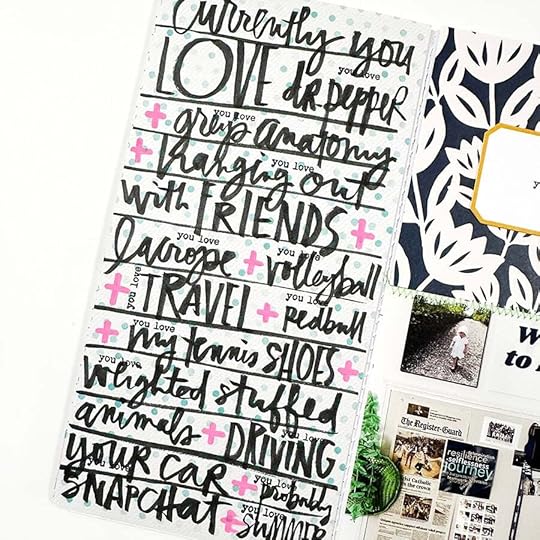 Currently you
LOVE dr. pepper
you love
+ greys anatomy
you love
+ hanging out
you love
with FRIENDS +
lacrosse + volleyball
you love
you love
+ TRAVEL + redbull
you love
you love
+ my tennis SHOES +
you love
weighted stuffed
you love
animals + DRIVING
you love
YOUR CAR + probably
you love
you love
SNAPCHAT + SUMMER
you love
W
to
The Register-Guard
resilience
selflessness
journey